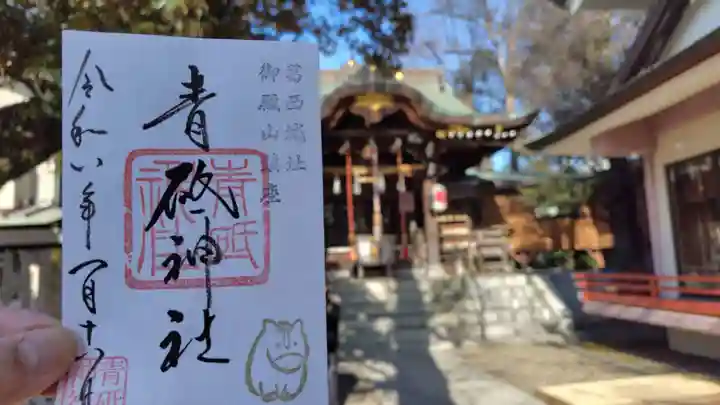 葛西城址
御殿山鎮座
青砥神社
令和八年一月十八日
青砥神社